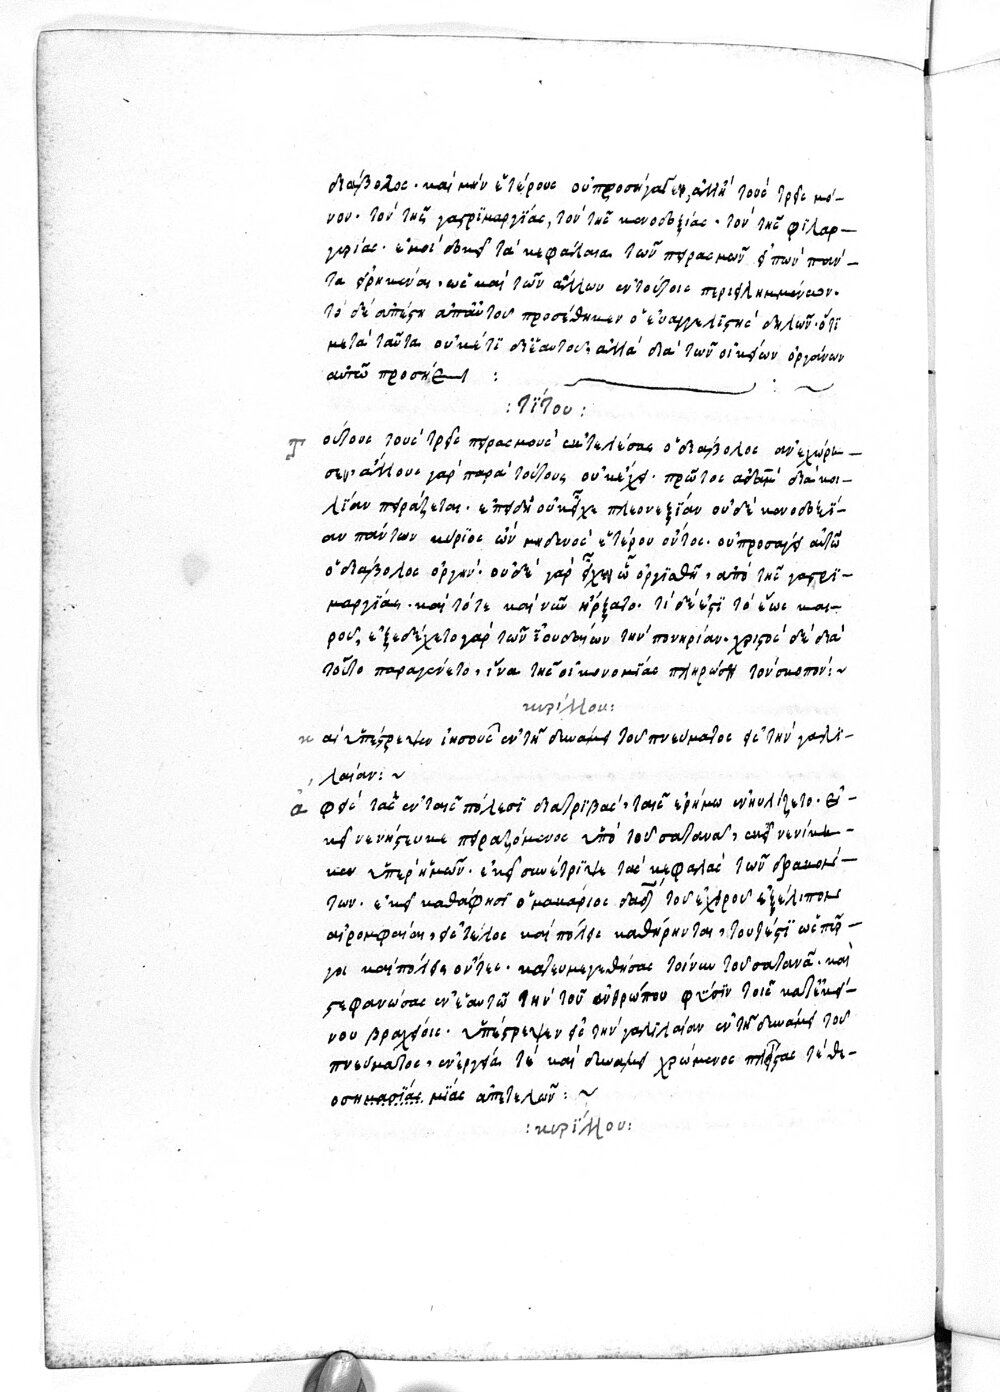 διάβολος· καὶ μὴν ἑτέρους οὐ προσήγαγεν, ἀλλὰ τοὺς τρεῖς μό-
νον· τὸν τῆς γαστριμαργίας, τὸν τῆς κενοδοξίας· τὸν τῆς φιλαρ-
γυρίας· ἐμοὶ δοκεῖ τὰ κεφάλαια τῶν πειρασμῶν εἰπὼν πάν-
τα εἰρηκέναι, ὡς καὶ τῶν ἄλλων ἐν τούτοις περιειλημμένων·
τὸ δὲ ἀπέστη ἀπ' αὐτοῦ προσέθηκεν ὁ εὐαγγελιστὴς δηλῶν· ὅτι
μετὰ ταῦτα οὐκέτι δι' ἑαυτοῦ, ἀλλὰ διὰ τῶν οἰκείων ὀργάνων
αὐτῷ προσῄει :
: Τίτου :
Τούτους τοὺς τρεῖς πειρασμοὺς ἐπιτελέσας ὁ διάβολος ἀνεχώρη-
σεν, ἄλλους γὰρ παρὰ τούτους οὐκ ἔχει· πρῶτος ἀδὰμ διὰ κοι-
λίαν πειράζεται· ἐπειδὴ οὐκ εἶχε πλεονεξίαν οὐδὲ κενοδοξί-
αν πάντων κύριος ὢν μηδενὸς ἑτέρου ὄντος· οὐ προσάγει αὐτῷ
ὁ διάβολος ὀργήν· οὐδὲ γὰρ εἶχεν ᾧ ὀργισθῇ, ἀπὸ τῆς γαστρι-
μαργίας· καὶ τότε καὶ νῦν ἤρξατο· τί δέ ἐστι τὸ ἕως και-
ροῦ, ἐξεδέχετο γὰρ τῶν ἰουδαίων τὴν πονηρίαν· χριστὸς δὲ διὰ
τοῦτο παραγένετο, ἵνα τῆς οἰκονομίας πληρώσῃ τὸν σκοπόν :~
κυρίλλου:
καὶ ὑπέστρεψεν ἰησοῦς ἐν τῇ δυνάμει τοῦ πνεύματος εἰς τὴν γαλι-
λαίαν: ~
ἀφεὶς τὰς ἐν ταῖς πόλεσι διατριβάς, ταῖς ἐρήμοις ἐνηυλίζετο· ἐ-
κεῖ νενήστευκε πειραζόμενος ὑπὸ τοῦ σατανᾶ, ἐκεῖ νενίκη-
κεν ὑπὲρ ἡμῶν· ἐκεῖ συνέτριψε τὰς κεφαλὰς τῶν δρακόν-
των· ἐκεῖ καθά φησι ὁ μακάριος δαδ τοῦ ἐχθροῦ ἐξέλιπον
αἱ ῥομφαίαι, εἰς τέλος καὶ πόλεις καθῄρηνται, τουτέστι ὡς πύρ-
γοι καὶ πόλεις ὄντες· κατευμεγεθήσας τοίνυν τοῦ σατανᾶ· καὶ
στεφανώσας ἐν ἑαυτῷ τὴν τοῦ ἀνθρώπου φύσιν τοῖς κατ' ἐκεί-
νου βραβείοις· ὑπέστρεψεν εἰς τὴν γαλιλαίαν ἐν τῇ δυνάμει τοῦ
πνεύματος, ἐνεργείᾳ τὲ καὶ δυνάμει χρώμενος πλείστας τὲ θε-
οσημασίας μίας ἀποτελῶν : ~
: κυρίλλου: